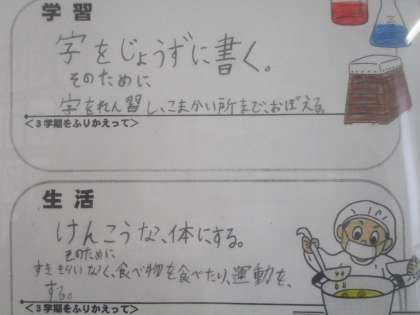 学習
字をじょうずに書く。
そのために
字をれん習し、こまかい所まで、おぼえる。
＜3学期をふりかえって＞
生活
けんこうな、体にする。
そのために
すききらいなく、食べ物を食べたり、運動を、
する。
＜3学期をふりかえって＞